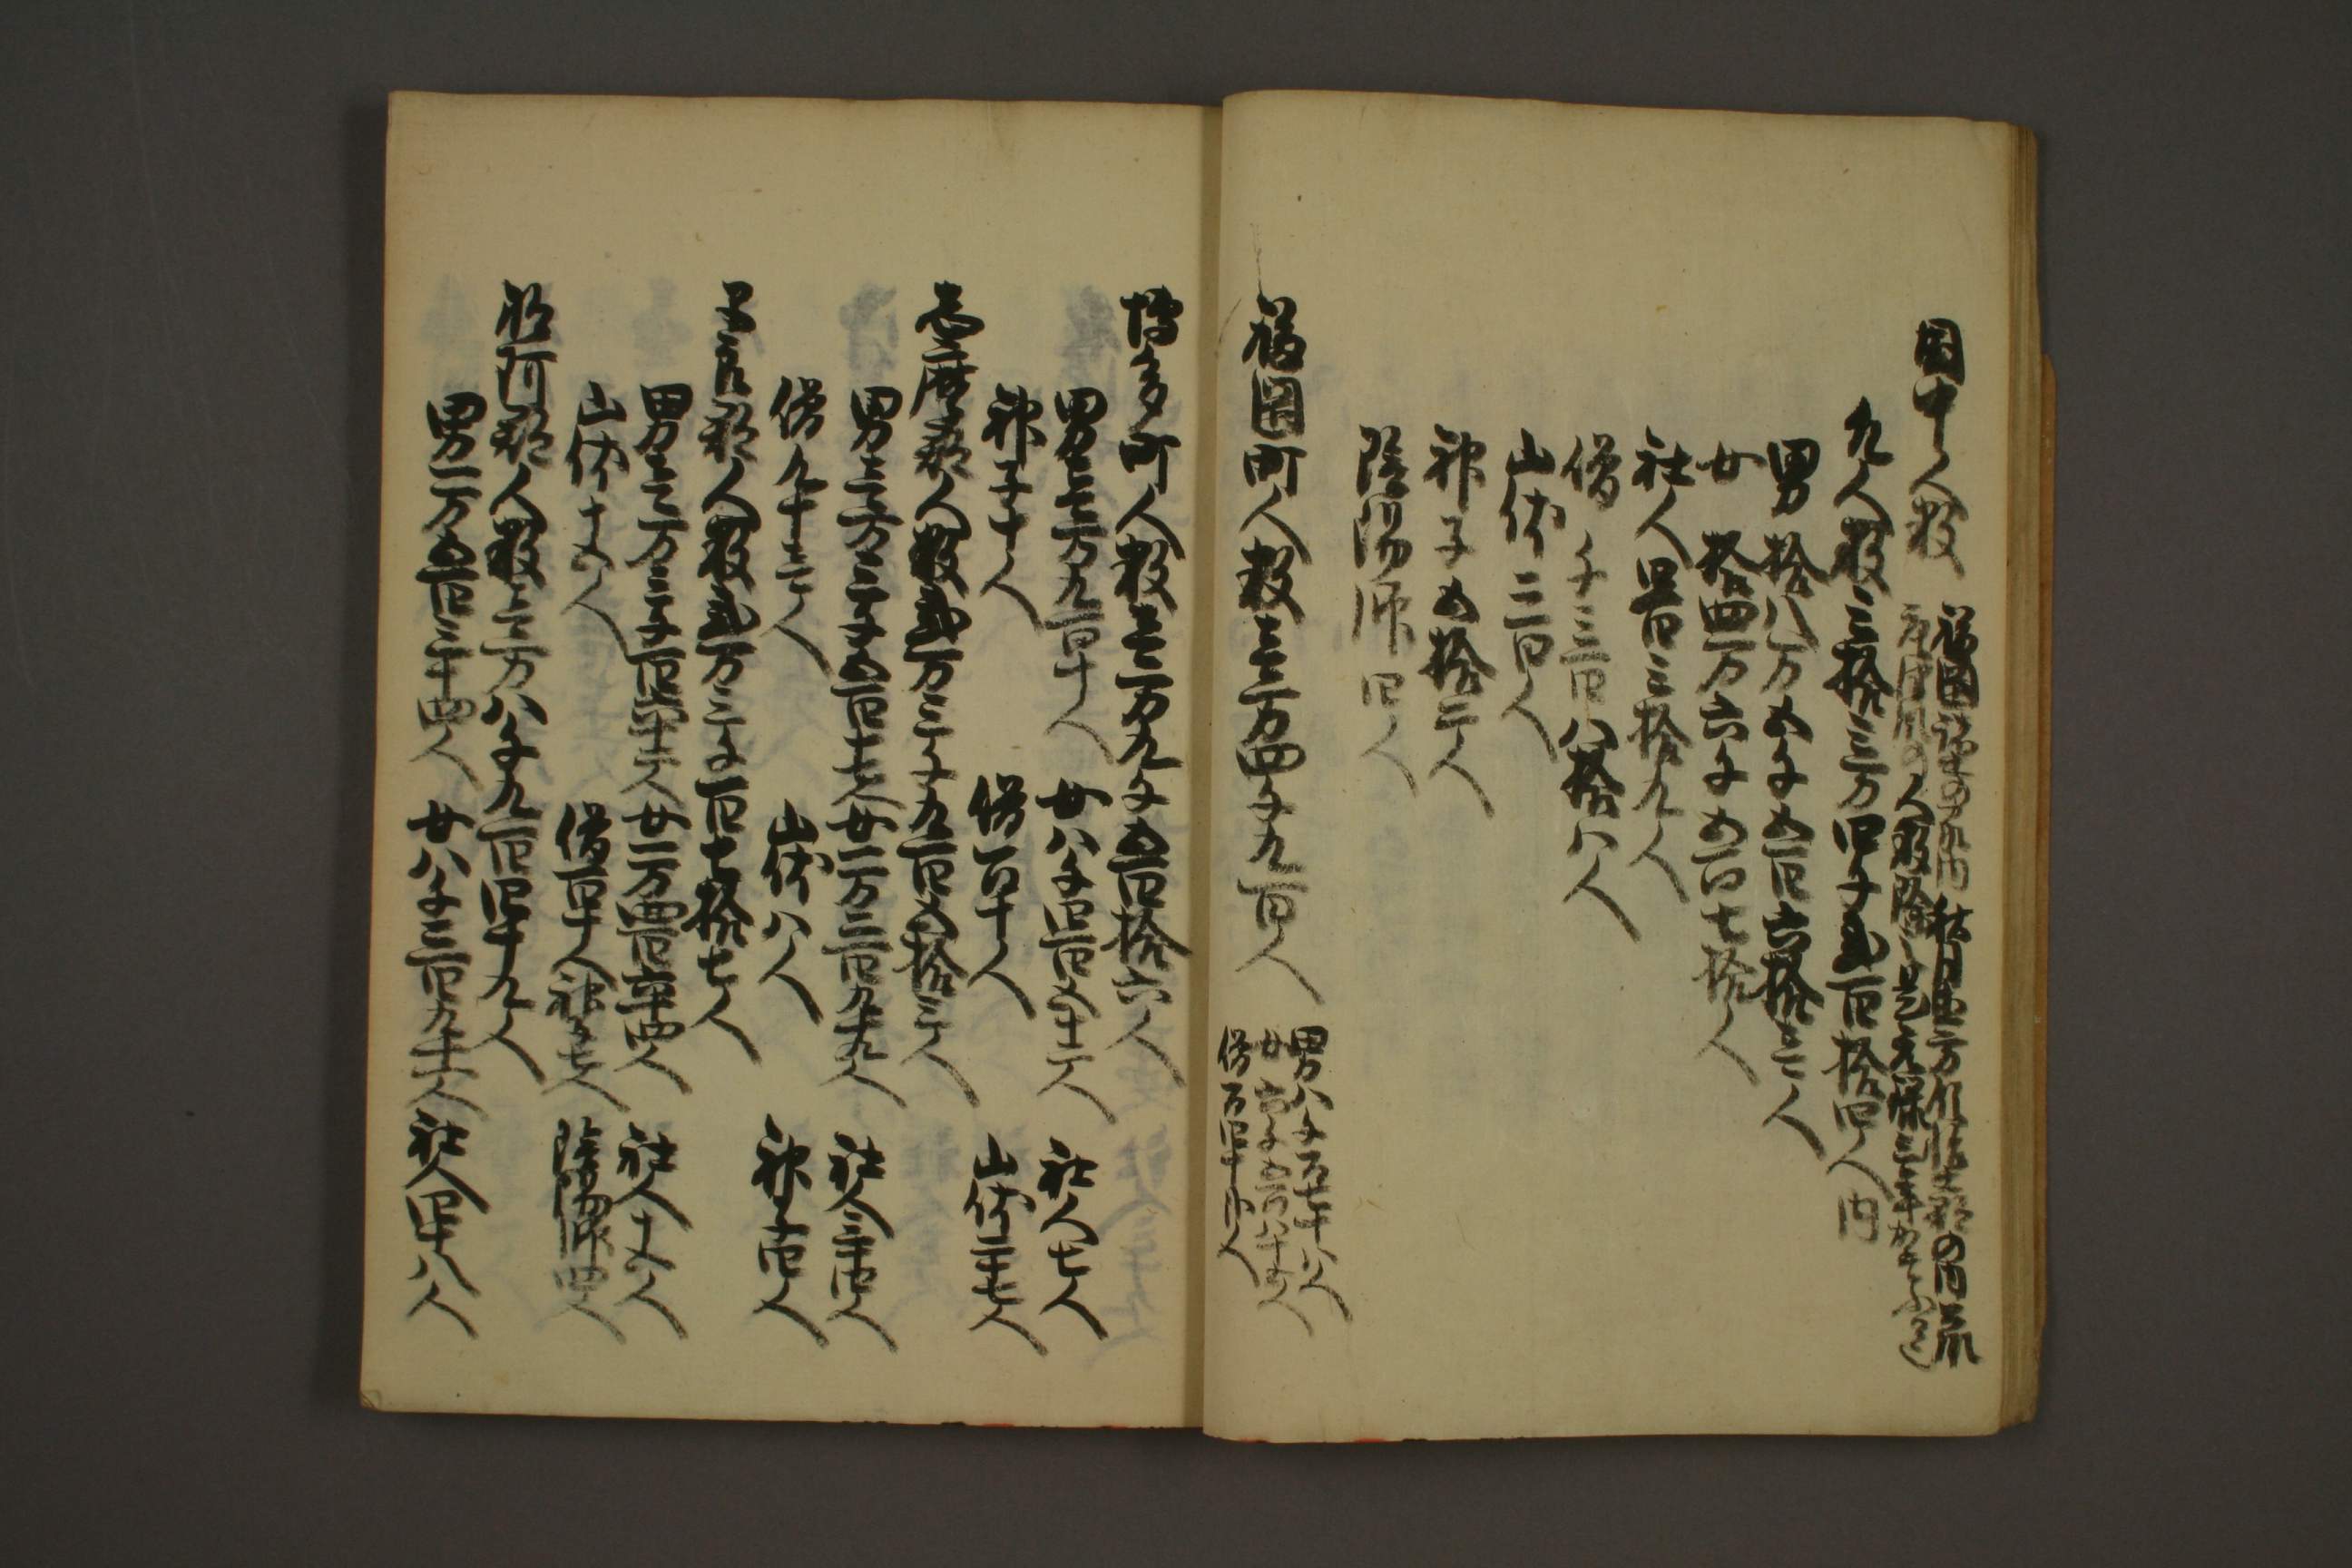 国中人数
福岡諸士の家内秋月
人数除之元禄三年
凡人数三拾三万四千弐百拾四人内
男拾八万五千五百六拾三人
女拾四万六千五百七拾人
社人四百三拾九人
僧千三百八拾八人
山伏二百人
神子五拾二人
陰陽師四人
福岡町人数壱万四千九百人
男八千百七十八人
女六千五百八十五人
僧百四十
博多町人数壱万九千五百拾六人
男壱万九百十人
女八千四百五十二人
社人七人
神子十人
僧百十人
山伏二十七人
志摩郡人数弐万三千九百五拾三人
男壱万三千五百十七人
女一万二百九十九人
社人三十四人
僧九十三人
山伏八人
神子
早良郡人数弐万三千百七拾七人
男壱万三千
女一万四百六十四人
社人十五人
山伏十五人
僧百十人
神子七人
陰陽師四人
那珂郡人数壱万八千九百四十九人
男一万五百三十四人
女八千三百九十
社人四十八人